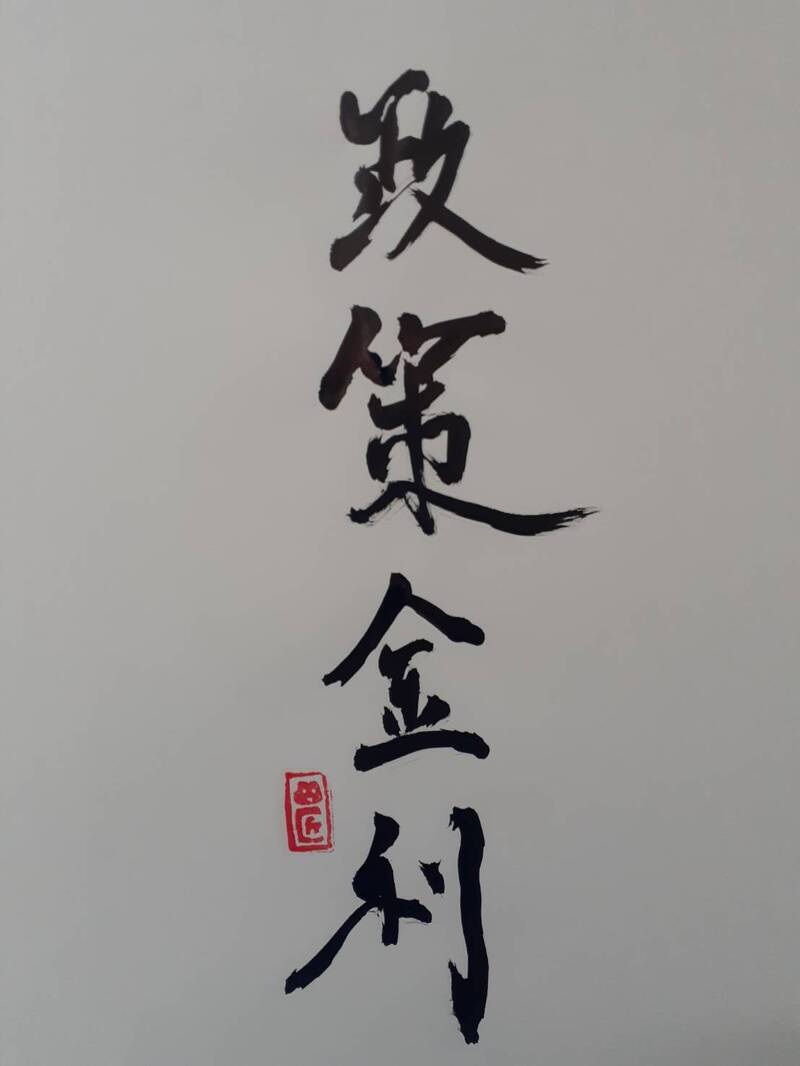 政策金利